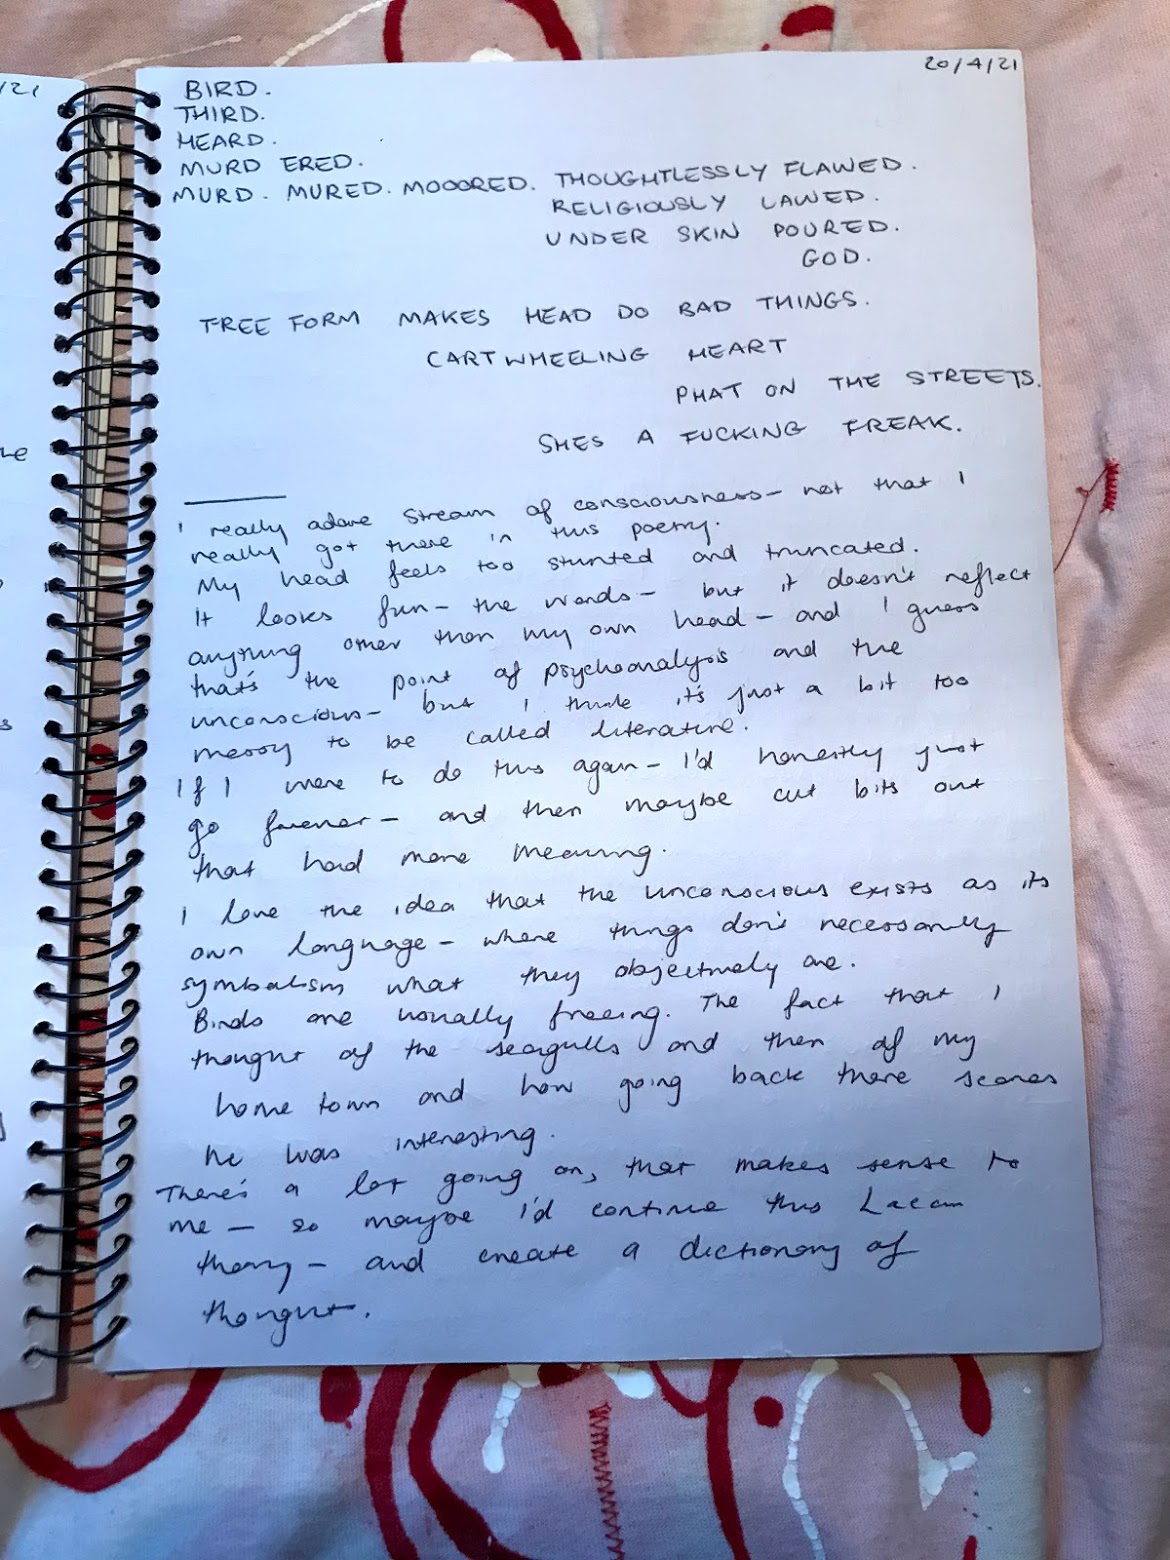 /21
20/4/21
BIRD.
THIRD.
HEARD.
MURD ERED.
MURD. MURED. MOOORED. THOUGHTLESSLY FLAWED.
RELIGIOUSLY LAWED.
UNDER SKIN POURED.
GOD.
FREE FORM MAKES HEAD DO BAD THINGS.
CARTWHEELING HEART
PHAT ON THE STREETS.
SHES A FUCKING FREAK.
I really adore stream of consciousness - not that I
really got there in this poetry.
My head feels too stunted and truncated.
It looks fun - the words - but it doesn't reflect
anything other than my own head - and I guess
that's the point of psychoanalysis and the
unconscious - but I think it's just a bit too
messy to be called literature.
If I were to do this again - I'd honestly just
go forever - and then maybe cut bits out
that had more meaning.
I love the idea that the unconscious exists as its
own language - where things don't necessarily
symbolism what they objectively are.
Birds are usually freeing. The fact that I
thought of the seagulls and then of my
home town and how going back there scares
me was interesting.
There's a lot going on, that makes sense to
me - so maybe I'd continue this Lacan
theory - and create a dictionary of
thought.